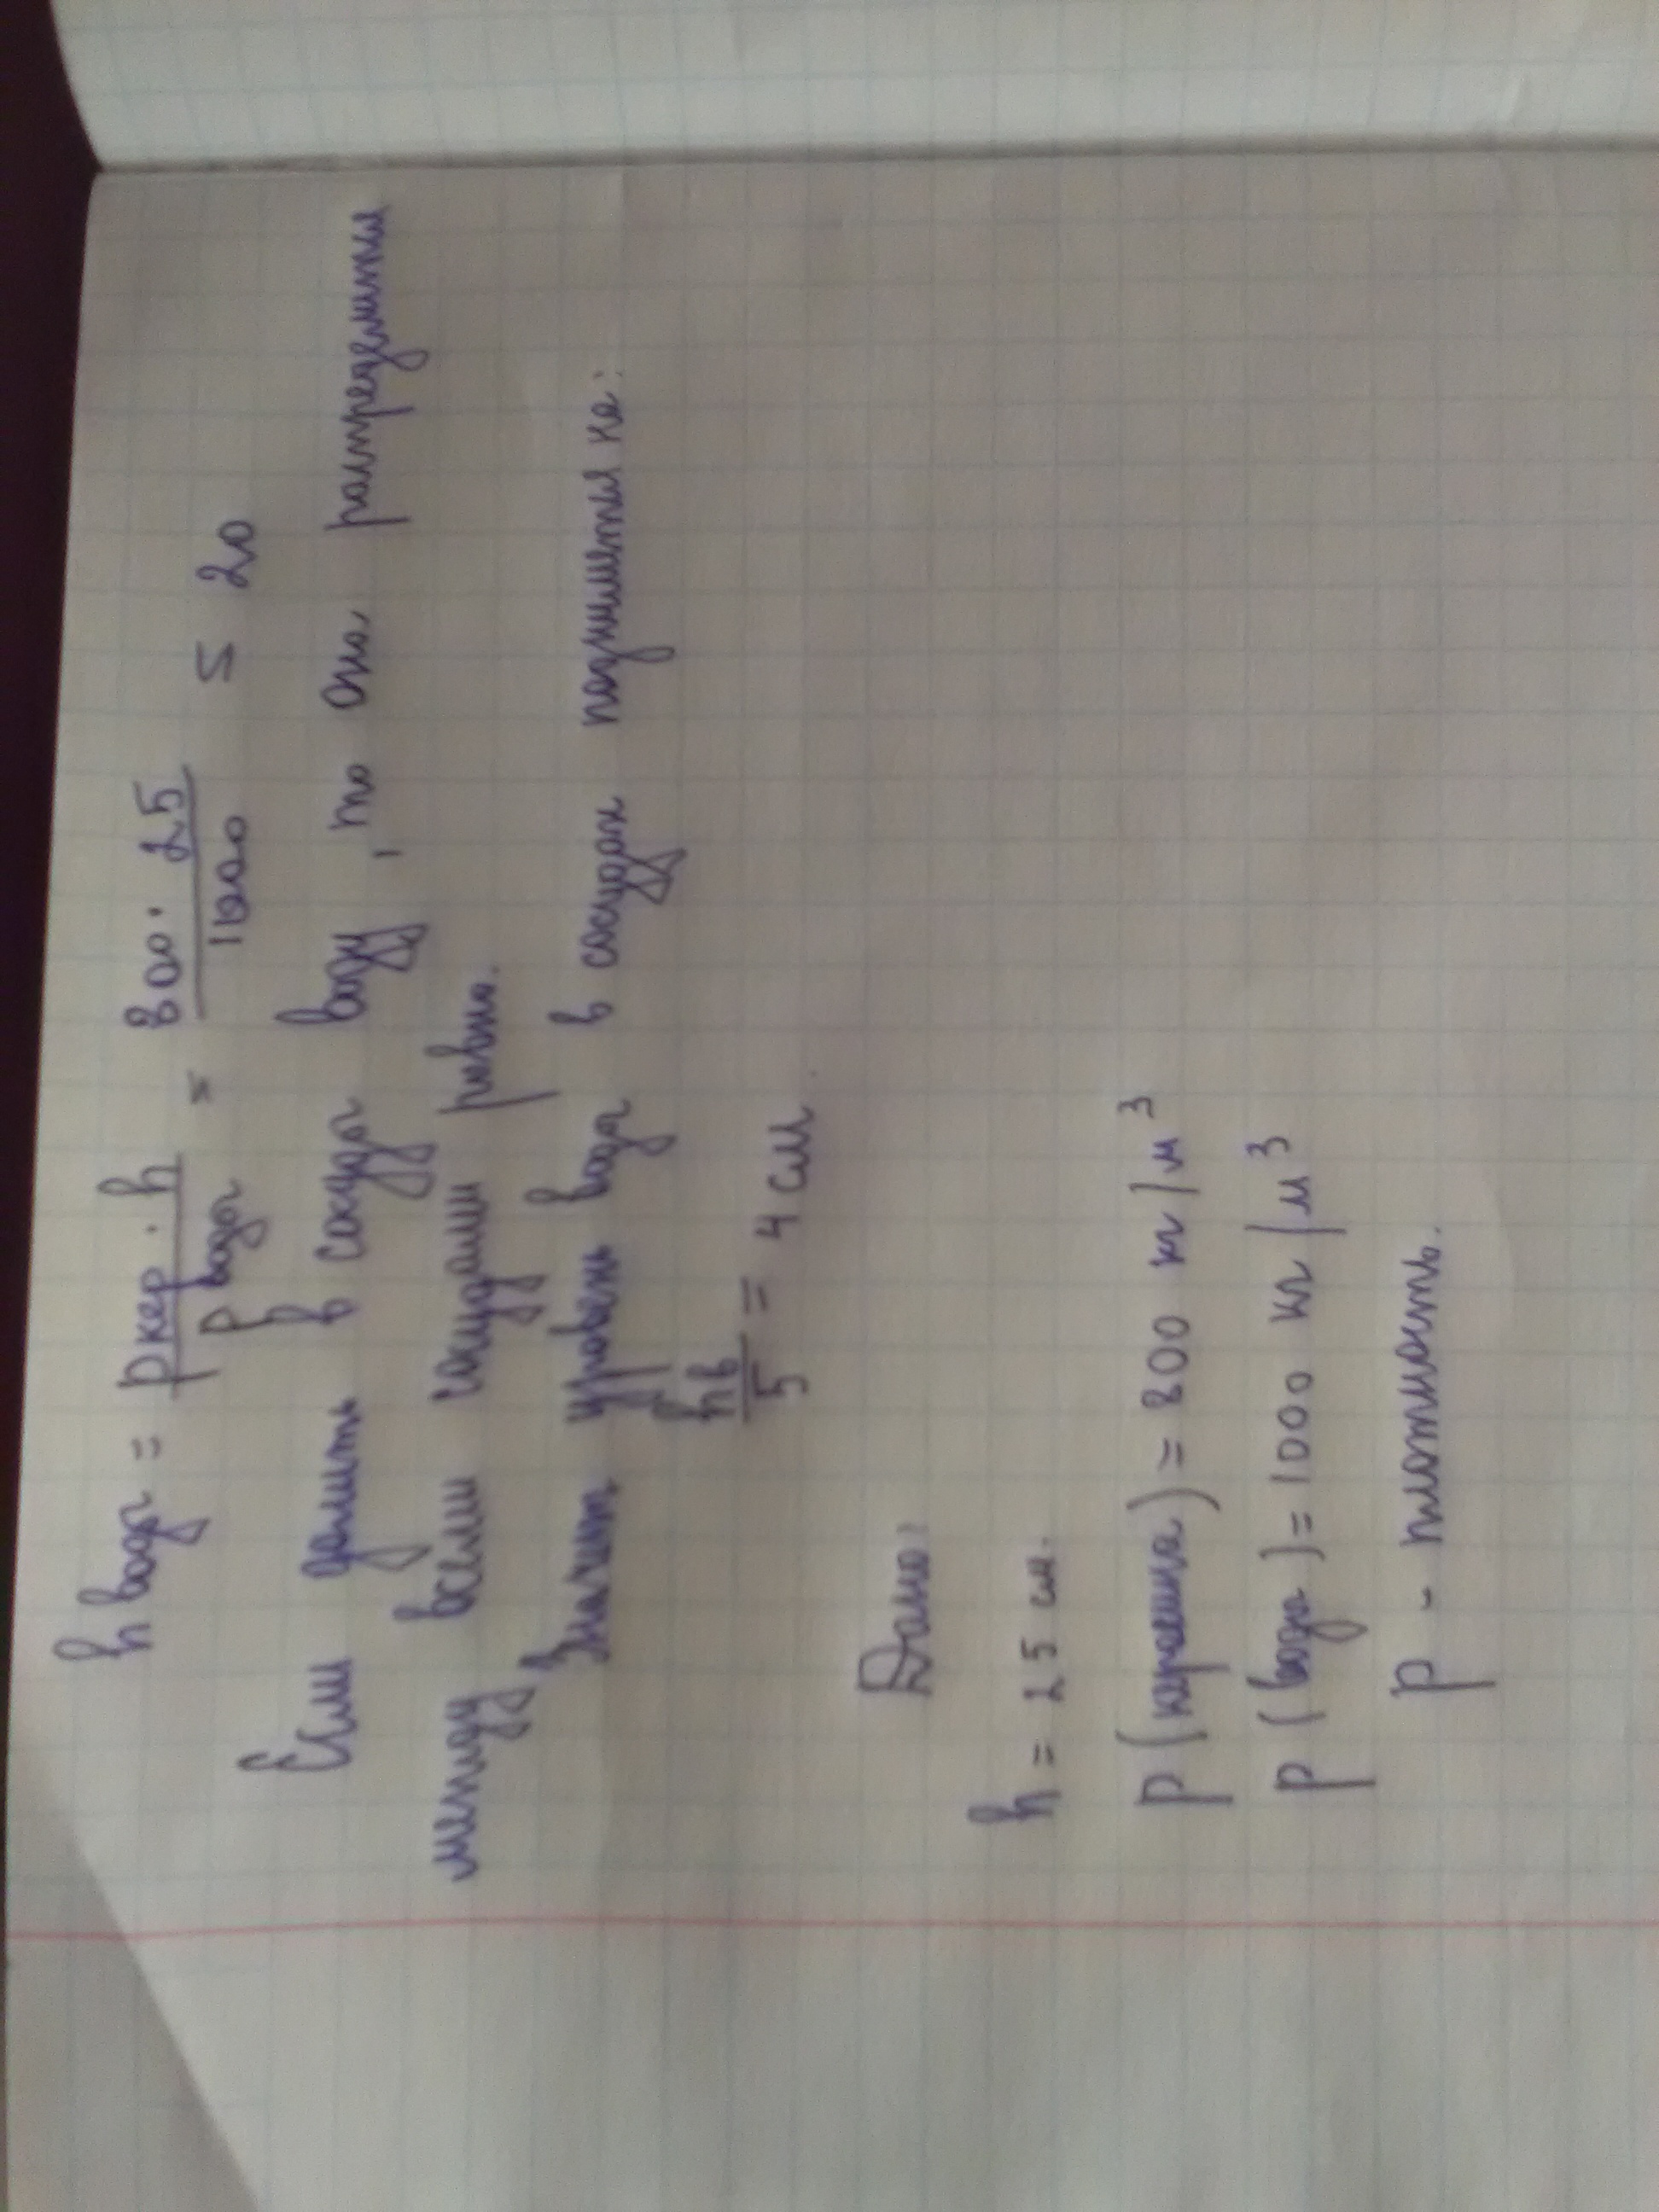 h воды = pкер. · h / p воды = 800 · 25 / 1000 = 20
Если долить в сосуды воду, то она распределится
между всеми сосудами ровно.
Значит уровень воды в сосудах поднимется на:
hв / 5 = 4 см
Дано:
h = 25 см.
p (керосина) = 800 кг/м³
p (воды) = 1000 кг/м³
p - плотность.